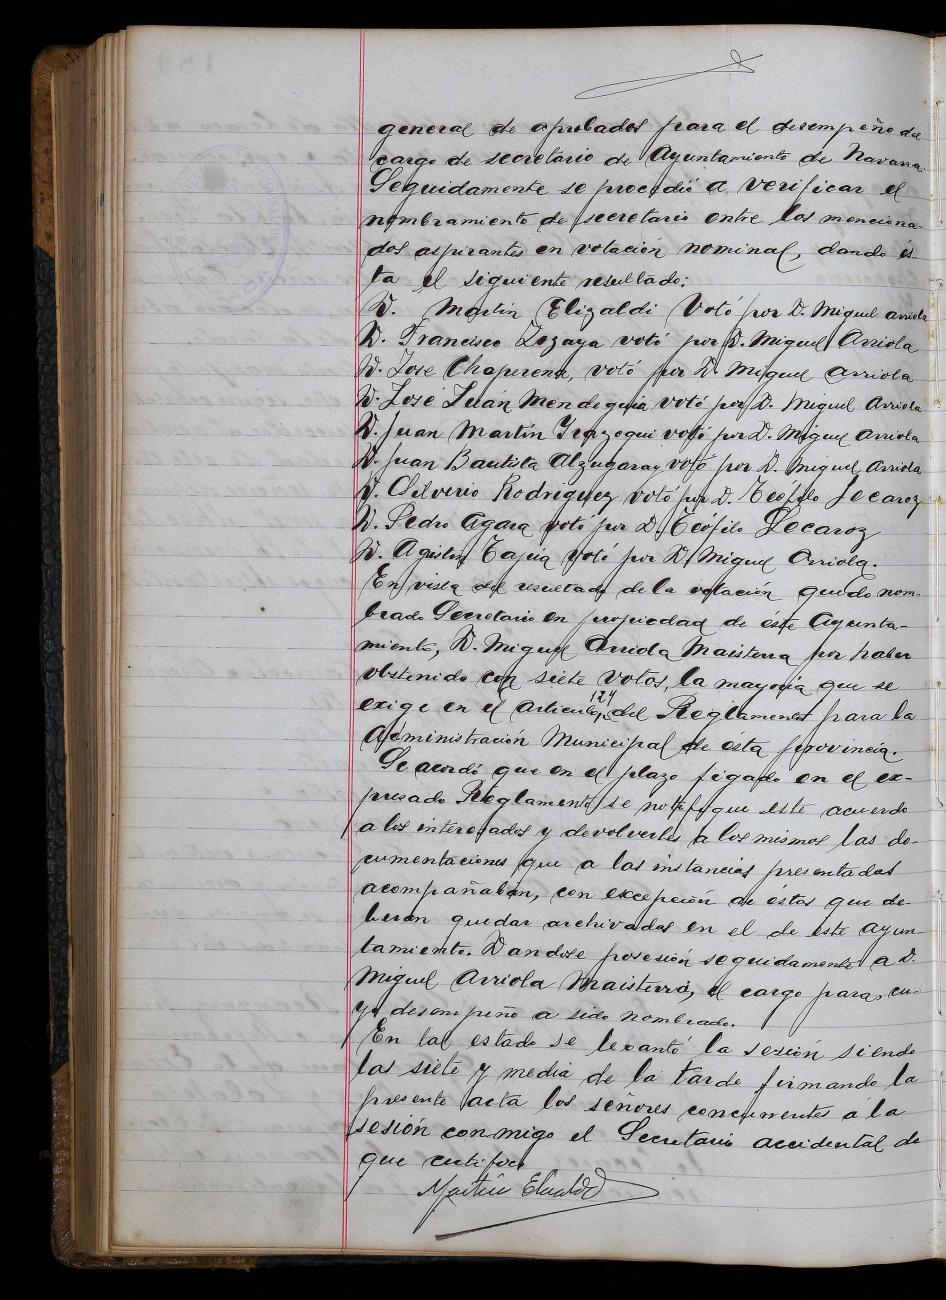 general de aprobados para el desempeño del
cargo de secretario de Ayuntamiento de Navarra.
Seguidamente se procedió a verificar el
nombramiento de secretario entre los menciona-
dos aspirantes en votación nominal, dando és-
ta el siguiente resultado:
D. Martín Elizaldi Votó por D. Miguel Arriola
D. Francisco Zozaya votó por D. Miguel Arriola
D. Jose Chaperena, votó por D. Miguel Arriola
D. José Juan Mendeguia votó por D. Miguel Arriola
D. Juan Martín Irazoqui votó por D. Miguel Arriola
D. Juan Bautista Alzugaray votó por D. Miguel Arriola
D. Silverio Rodriguez votó por D. Teófilo Lecaroz
D. Pedro Agara votó por D. Teófilo Lecaroz
D. Agustin Tapia votó por D. Miguel Arriola.
En vista del resultado de la votación quedo nom-
brado Secretario en propiedad de éste Ayunta-
miento, D. Miguel Arriola Maisterra por haber
obstenido con siete votos, la mayoria que se
exige en el articulo, 124 del Reglamento para la
Administración Municipal de esta provincia.
Se acordó que en el plazo figado en el ex-
presado Reglamento se notifique este acuerdo
a los interesados y devolverles a los mismos las do-
cumentaciones que a las instancias presentadas
acompañaban, con excepción de éstas que de-
beran quedar archivadas en el de este ayun-
tamiento. Dandose posesión seguidamente a D.
Miguel Arriola Maisterra, el cargo para cu-
yo desempeño a sido nombrado.
En tal estado se levantó la sesión siendo
las siete y media de la tarde firmando la
presente acta los señores concurrentes a la
sesión conmigo el Secretario accidental de
que certifico
Martín Elizalde